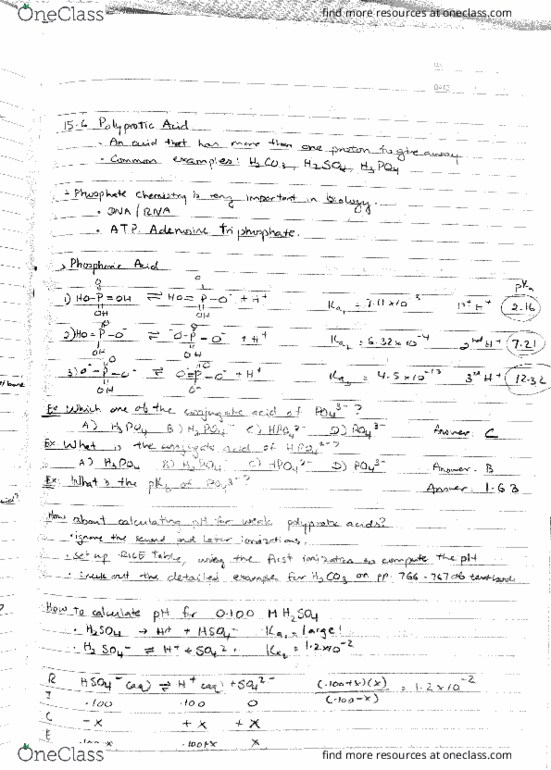 OneClass
find more resources at oneclass.com
15-6 Polyprotic Acid
• An acid that has more than one proton to give away
• Common examples: H₂CO₃, H₂SO₄, H₃PO₄
Phosphate chemistry is very important in biology.
• DNA/RNA
• ATP: Adenosine Triphosphate.
Phosphoric Acid
pKa
1) HO-P=OH ⇌ HO=P-O⁻ + H⁺ Ka₁ = 7.11×10 1st H⁺ 2.16
OH OH
2) HO=P-O⁻ ⇌ ⁻O-P-O⁻ + H⁺ Ka₂ = 6.32×10⁻⁴ 2nd H⁺ 7.21
OH OH
3) O⁻-P-O⁻ ⇌ O=P-O⁻ + H⁺ Ka₃ = 4.5×10⁻¹³ 3rd H⁺ 12.32
OH O⁻
Ex Which one of the conjugate acid of PO₄³⁻?
A) H₃PO₄ B) H₂PO₄⁻ C) HPO₄²⁻ D) PO₄³⁻ Answer: C
Ex What is the conjugate acid of HPO₄²⁻?
A) H₃PO₄ B) H₂PO₄⁻ C) HPO₄²⁻ D) PO₄³⁻ Answer: B
Ex: What is the pKb of PO₄³⁻? Answer 1.68
How about calculating pH for weak polyprotic acids?
• ignore the second and later ionizations.
• set up RICE Table, using the first ionization to compute the pH
• check out the detailed examples for H₂CO₃ on pp. 766-767 of textbook
How to calculate pH for 0.100 M H₂SO₄
• H₂SO₄ → H⁺ + HSO₄⁻ Ka₁ = large!
• H₂SO₄⁻ ⇌ H⁺ + SO₄²⁻ Ka₂ = 1.2×10⁻²
R HSO₄⁻(aq) ⇌ H⁺(aq) + SO₄²⁻ (.100+x)(x) / (.100-x) = 1.2×10⁻²
I .100 .100 0
C -x +x +x
E .100-x .100+x x
OneClass
find more resources at oneclass.com